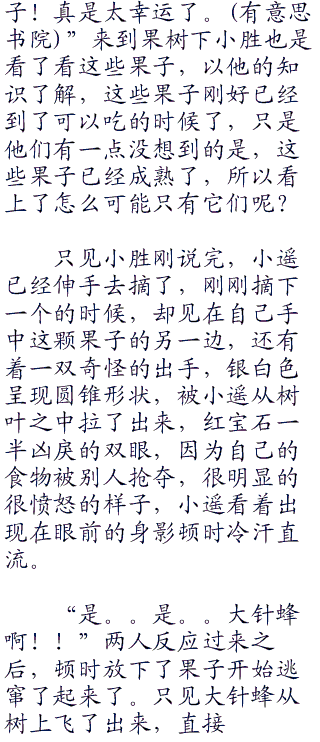 子！真是太幸运了。(有意思
书院)”来到果树下小胜也是
看了看这些果子，以他的知
识了解，这些果子刚好已经
到了可以吃的时候了，只是
他们有一点没想到的是，这
些果子已经成熟了，所以看
上了怎么可能只有它们呢？
只见小胜刚说完，小遥
已经伸手去摘了，刚刚摘下
一个的时候，却见在自己手
中这颗果子的另一边，还有
着一双奇怪的出手，银白色
呈现圆锥形状，被小遥从树
叶之中拉了出来，红宝石一
半凶戾的双眼，因为自己的
食物被别人抢夺，很明显的
很愤怒的样子，小遥看着出
现在眼前的身影顿时冷汗直
流。
“是。。是。。大针蜂
啊！！”两人反应过来之
后，顿时放下了果子开始逃
窜了起来了。只见大针蜂从
树上飞了出来，直接